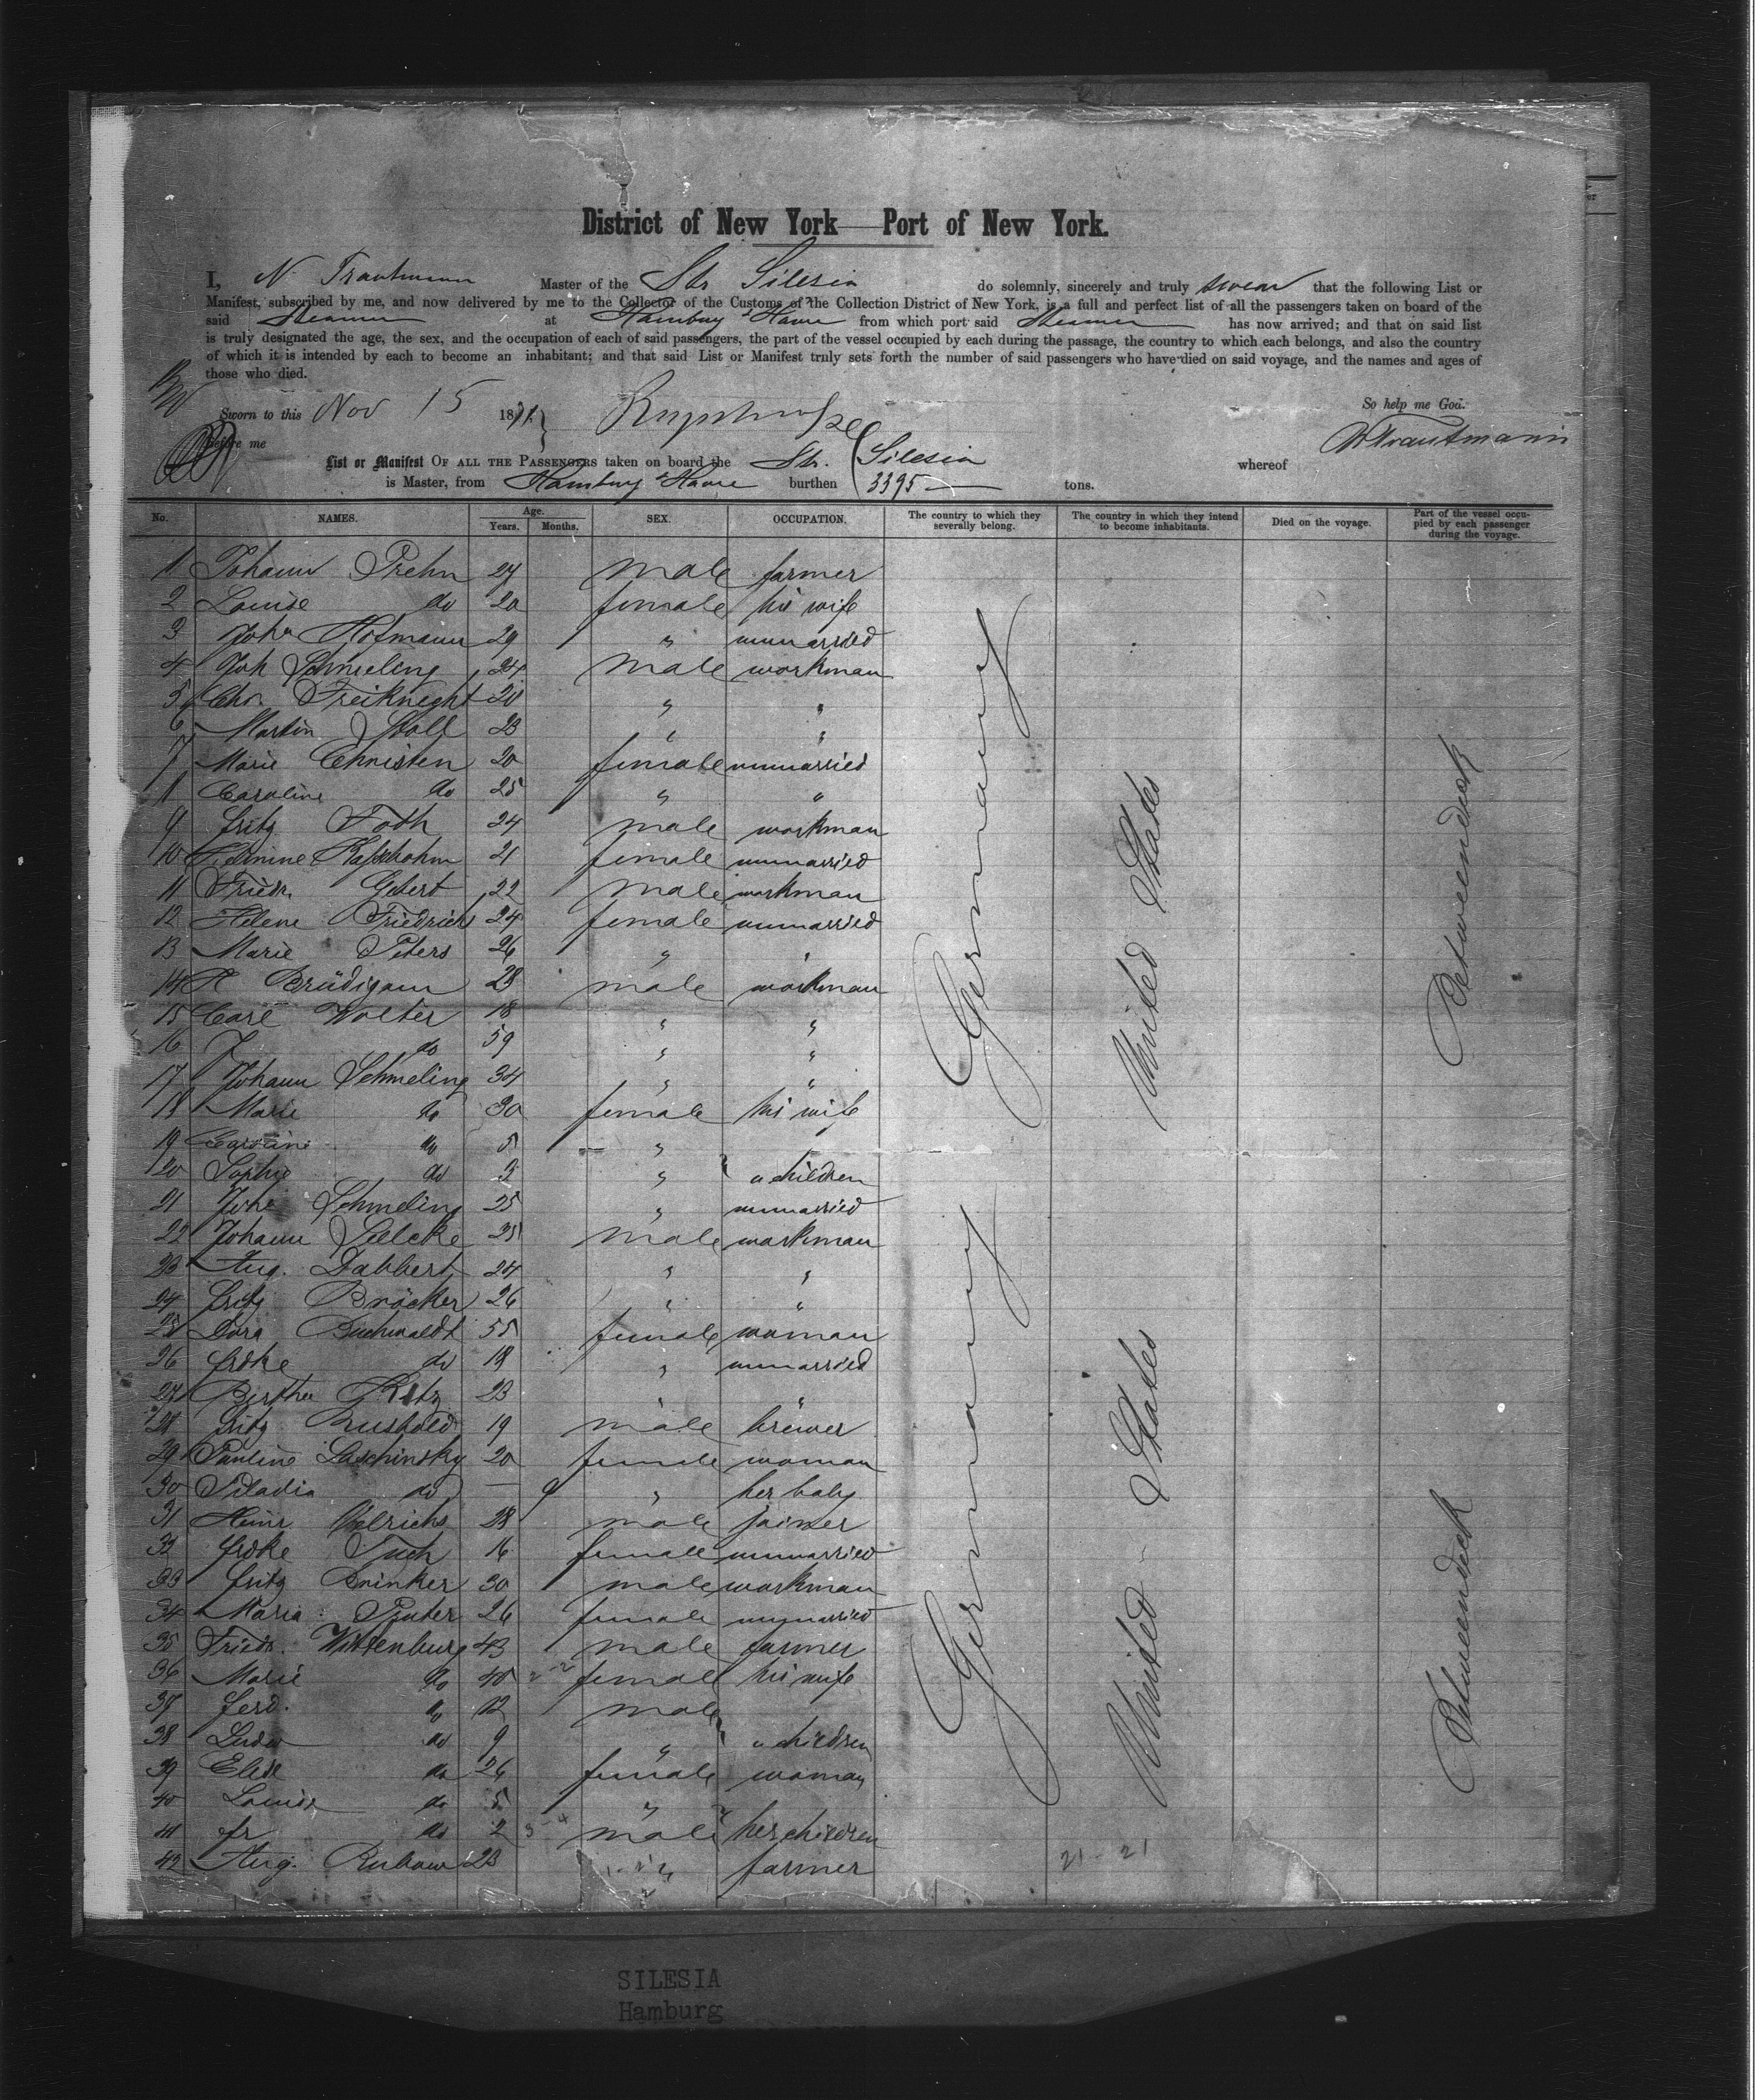 District of New York — Port of New York.
I, N. Trautmann Master of the Str Silesia do solemnly, sincerely and truly swear that the following List or
Manifest, subscribed by me, and now delivered by me to the Collector of the Customs of the Collection District of New York, is a full and perfect list of all the passengers taken on board of the
said Steamer at Hamburg & Havre from which port said Steamer has now arrived; and that on said list
is truly designated the age, the sex, and the occupation of each of said passengers, the part of the vessel occupied by each during the passage, the country to which each belongs, and also the country
of which it is intended by each to become an inhabitant; and that said List or Manifest truly sets forth the number of said passengers who have died on said voyage, and the names and ages of
those who died.
So help me God.
Sworn to this Nov 15 187
Before me
Trautmann
List or Manifest OF ALL THE PASSENGERS taken on board the Str. Silesia whereof
is Master, from Hamburg & Havre burthen 3395 tons.
No. NAMES. Age. Years. Months. SEX. OCCUPATION. The country to which they severally belong. The country in which they intend to become inhabitants. Died on the voyage. Part of the vessel occupied by each passenger during the voyage.
1 Johann Prehn 27 male farmer
2 Louise do 20 female his wife
3 Joha Hofmann 29 " unmarried
4 Joh Schmeling 24 male workman
5 Chr. Freiknecht 20 " "
6 Martin Stoll 23 " "
7 Marie Christen 20 female unmarried
8 Caroline do 25 " "
9 Fritz Toth 24 male workman
10 21 female unmarried
11 Friedr. Gebert 22 male workman
12 Helene Friedrichs 24 female unmarried
13 Marie Peters 26 " "
14 H Brüdigam 28 male workman
15 Carl Wolter 18 " "
16 J do 59 " "
17 Johann Schmeling 34 " "
18 Marie do 30 female his wife
19 Caroline do 5 "
20 Sophie do 3 " " children
21 Joha Schmeling 25 " unmarried
22 Johann Sielcke 25 male workman
23 Aug. Dabbert 24 " "
24 Fritz Bröcker 26 " "
25 Dora Buchwaldt 55 female woman
26 Frdke do 18 " unmarried
27 Bertha 23 " "
28 Fritz 19 male brewer
29 Pauline Laschinsky 20 female woman
30 do — 9 " her baby
31 Heinr Oelrichs 28 male joiner
32 Frdke Tuch 16 female unmarried
33 Fritz Brinker 30 male workman
34 Maria Pruter 26 female unmarried
35 Friedr. Wittenburg 43 male farmer
36 Marie do 40 female his wife
37 Ferd. do 12 male
38 do 9 " " children
39 Elise do 26 female woman
40 Louise do 5 "
41 Fr do 2 male her children
42 Aug. Rubow 23 " farmer
Germany
Germany
Germany
United States
United States
Betweendeck
Betweendeck
21 - 21
SILESIA
Hamburg